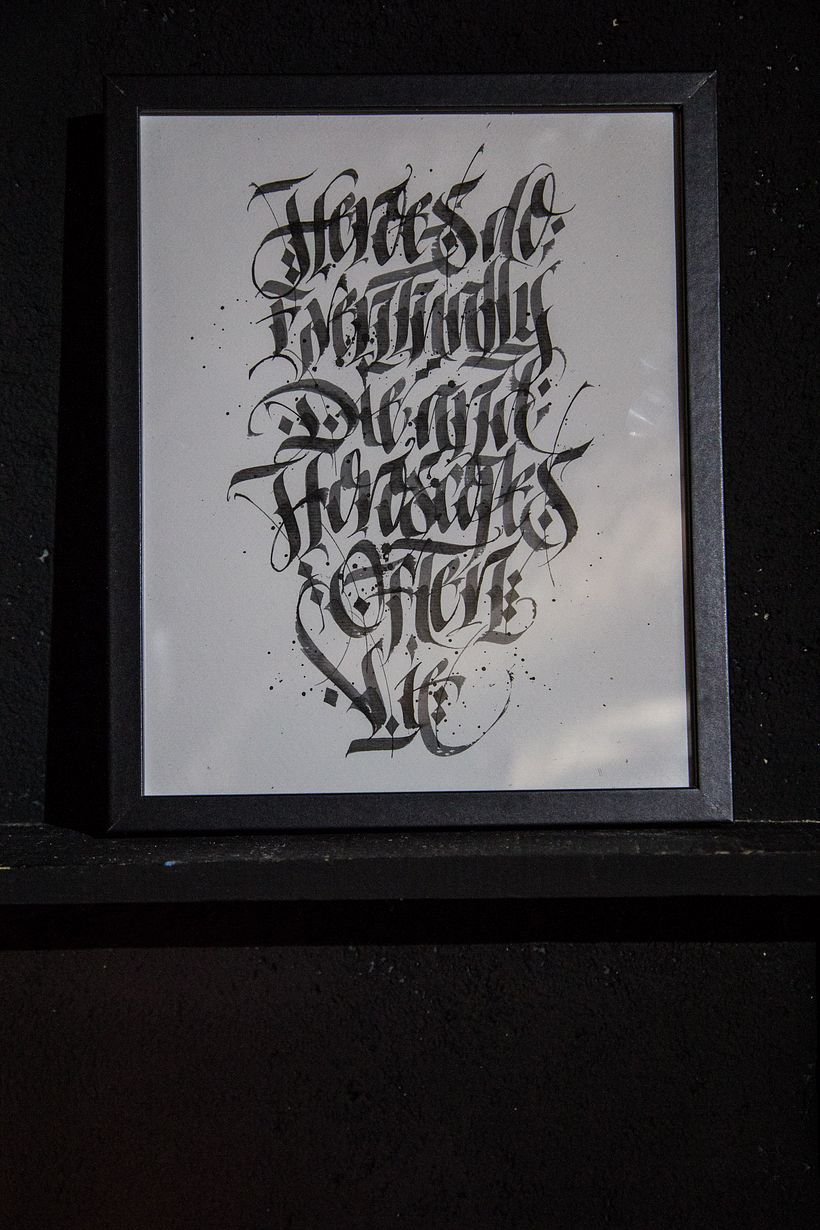 Heroes do
Eventually
Die and
Horoscopes
Often
Lie